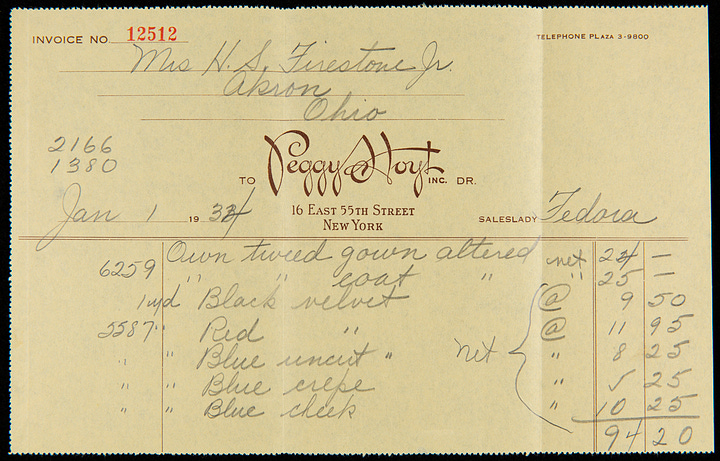 INVOICE NO. 12512
TELEPHONE PLAZA 3-9800
Mrs H. S. Firestone Jr.
Akron
Ohio
2166
1380
TO Peggy Hoyt INC. DR.
16 EAST 55TH STREET
NEW YORK
Jan 1 1934
SALESLADY Fedora
Own tweed gown altered net 24 —
6259 " " coat " " 25 —
1 yd Black velvet @ 9 50
5587 " Red " @ 11 95
" " Blue uncut " net " 8 25
" " Blue crepe " 5 25
" " Blue check " 10 25
94 20